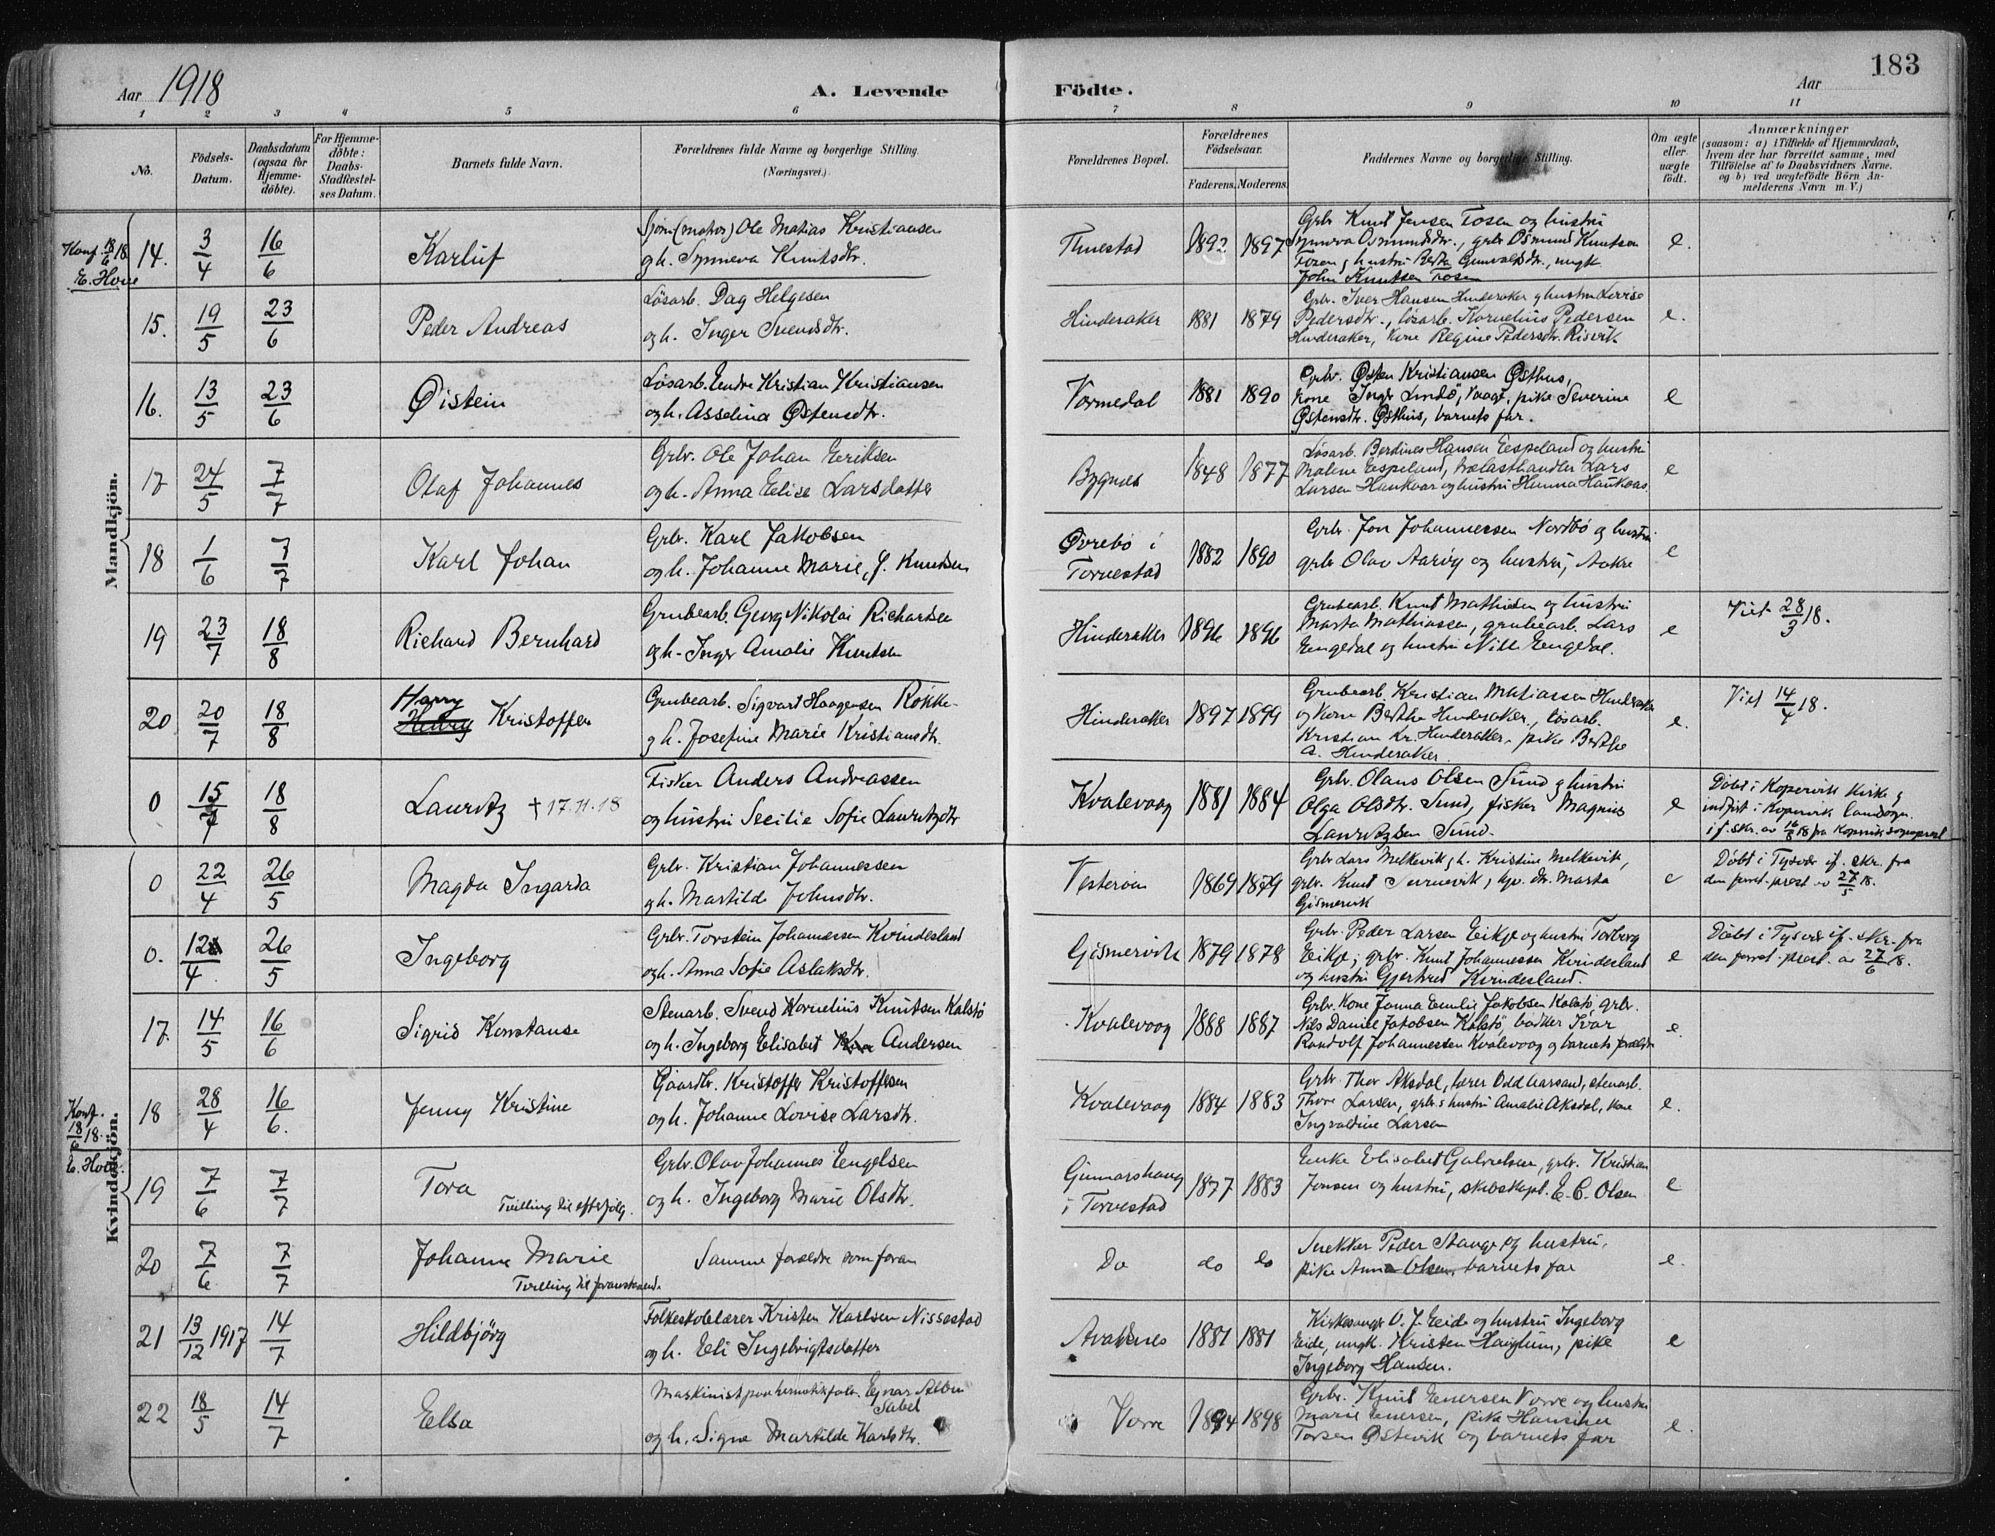 183
Aar 1918
A. Levende
Födte.
Aar
1 2 3 4 5 6 7 8 9 10 11
No.
Födsels-Datum.
Daabsdatum (ogsaa for Hjemme-döbte).
For Hjemme-döbte: Daabs-Stadfæstel-ses Datum.
Barnets fulde Navn.
Forældrenes fulde Navne og borgerlige Stilling. (Næringsvei.)
Forældrenes Bopæl.
Forældrenes Födselsaar.
Faderens. Moderens.
Faddernes Navne og borgerlige Stilling.
Om ægte eller uægte födt.
Anmærkninger
(saasom: a) i Tilfælde af Hjemmedaab, hvem der har forrettet samme, med Tilföielse af to Daabsvidners Navne. og b) ved uægtefödte Börn An-melderens Navn m. V.)
Mandkjön.
Konf. 18/6 18.
E. Hove
14. 3/4 16/6 Karluf
Sjöm (motor) Ole Matias Kristiansen
og h. Synneva Knutsdtr.
Tuestad 1892 1897
Grbr Knut Jensen Tosen og hustru
Synneva Osmundsdtr., grbr Osmund Knutsen
Tosen, hustru Berta Gunvaldsdtr., ungk
John Knutsen Tosen
e.
15. 19/5 23/6 Peder Andreas
Løsarb. Dag Helgesen
og h. Inger Svendsdtr.
Hinderaker 1881 1879
Grbr. Iver Hansen Hinderaker og hustru Lovise
Pedersdtr., løsarb. Kornelius Pedersen
Hinderaker, kone Regine Pedersdtr. Risvik
e.
16. 13/5 23/6 Øistein
Løsarb. Endre Kristian Kristiansen
og h. Asselina Østensdtr.
Vormedal 1881 1890
Grbr. Østen Kristiansen Østhus,
kone Inger Lindö, Vaage, pike Severine
Østensdtr. Østhus, barnets far.
e
17 24/5 7/7 Olaf Johannes
Grbr. Ole Johan Eriksen
og h. Anna Elise Larsdatter
Bygnes 1848 1877
Løsarb. Berdines Hansen Espeland og hustru
Malene Espeland, trælasthandler Lars
Larsen Haukaas og hustru Hanna Haukaas
e
18 1/6 7/7 Karl Johan
Grbr. Karl Jakobsen
og h. Johanne Marie, J. Knutsen
Øvrebö i
Torvestad 1882 1890
Grbr. Jon Johannessen Nordbö og hustru
grbr Olav Aaröy og hustru, Aakre
e
19 23/7 18/8 Richard Bernhard
Grubearb. Georg Nikolai Richardsen
og h. Inger Amalie Knutsen
Hinderaker 1896 1896
Grubearb. Knut Mathisen og hustru
Marta Mathiassen, grubearb. Lars
Engedal og hustru Nille Engedal.
e
Viet 28/3 18.
20 20/7 18/8 Harry Kristoffer
Grubearb. Sigvart Haagensen Røkke
og h. Josefine Marie Kristiansdtr.
Hinderaker 1897 1899
Grubearb Kristian Matiassen Hinderaker
og kone Berthe Hinderaker, løsarb.
Kristian Kr. Hinderaker, pike Berthe
A. Hinderaker.
e.
Viet 14/4 18.
0 15/7 18/8 Lauritz † 17.11.18
Fisker Anders Andreassen
og hustru Secilie Sofie Lauritzdtr
Kvalevaag 1881 1884
Grbr. Olaus Olsen Sund og hustru
Olga Olsdtr. Sund, fisker Magnus
Lauritzsen Sund.
e
Döbt i Kopervik kirke og
indført i Kopervik landsogn.
i f. skr. av 16/8 18 fra Kopervik sogneprest
Kvindekjön.
0 22/4 26/5 Magda Ingarda
Grbr. Kristian Johannessen
og h. Martilde Johnsdtr.
Vesterøen 1869 1879
Grbr Lars Melkevik, h. Kristine Melkevik,
grbr. Knut, gv. dtr. Marta
Gismervik
e
Döbt i Tysvær if. skr. fra
den forret. prest av 27/5 18.
0. 12/4 26/5 Ingeborg
Grbr. Torstein Johannessen Kvindesland
og h. Anna Sofie Aslaksdtr.
Gismervik 1879 1878
Grbr. Peder Larsen Eikje og hustru Torberg
Eikje, grbr. Knut Johannessen Kvindesland
og hustru Gjertrud Kvindesland.
e
Döbt i Tysvær if. skr. fra
den forret. prest. av 27/6 18.
17. 14/5 16/6 Sigrid Konstanse
Stenarb. Svend Kornelius Knutsen Kalstö
og h. Ingeborg Elisabet Andersen
Kvalevaag 1888 1887
Grbr. Kone Janna Emilie Jakobsen Kalstö, grbr.
Nils Daniel Jakobsen Kalstö, bödker Ivar
Randolf Johannessen Kvalevaag og barnets foræld
e.
Konf. 18/6 18.
E. Hove
18 28/4 16/6. Jenny Kristine
Gaardbr. Kristoffer Kristoffersen
og h. Johanne Lovise Larsdtr.
Kvalevaag 1884 1883
Grbr. Thor Aksdal, lærer Odd Aarsand, stenarb.
Thore Larsen, grbr.s hustru Amalie Aksdal, kone
Ingvaldine Larsen
e.
19 7/6 7/7 Tora
Tvilling til efterfølg.
Grbr. Olav Johannes Engelsen
og h. Ingeborg Marie Olsdtr.
Gunnarshaug
i Torvestad 1877 1883
Enke Elisabet Gabrielsen, grbr. Kristian
Jonsen og hustru, skibskapt. E. C. Olsen
e
20 7/6 7/7 Johanne Marie
Tvilling til foranstaaende.
Samme foreldre som foran
Do do do
Snekker Peder Stange og hustru,
pike Anna Olsen, barnets far
e.
21 13/12 1917 14/7 Hildbjörg
Folkeskolelærer Kristen Karlsen Nissestad
og h. Eli Ingebrigtsdatter
Avaldsnes 1881 1881
Kirkesanger O. J. Eide og hustru Ingeborg
Eide, ungk. Kristen Hauglum, pike
Ingeborg Hansen.
e
22 18/5 14/7 Elsa
Maskinist paa hermetikfabr. Ejnar Albin
Sabel
og h. Signe Martilde Karlsdtr.
Vorre 1894 1898
Grbr. Knut Enersen Vorre og hustru
Marie Enersen, pike Hansine
Torsen Østevik og barnets far
e.